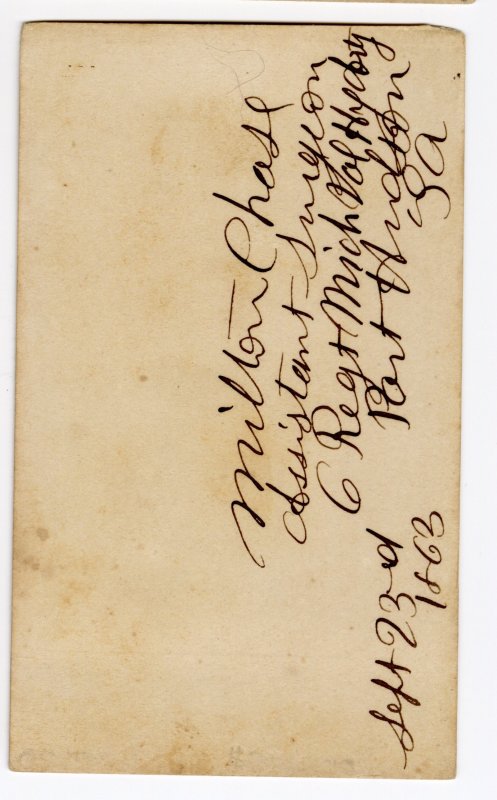 Milton Chase
Assistant Surgeon
6 Regt Mich Vol Hy Arty
Port Hudson
La
Sept 23rd
1863